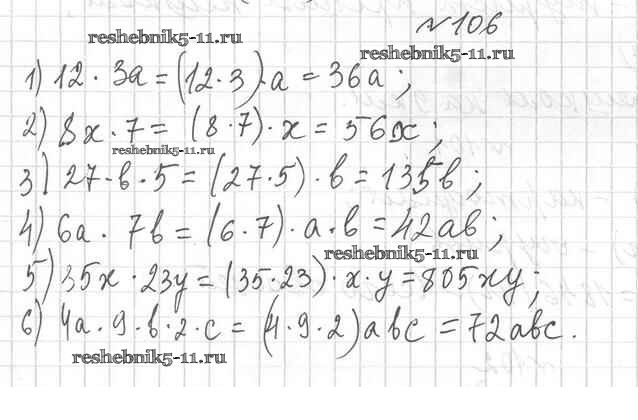 №106
reshebnik5-11.ru
reshebnik5-11.ru
1) 12 · 3a = (12 · 3) · a = 36a ;
2) 8x · 7 = (8 · 7) · x = 56x ;
reshebnik5-11.ru
3) 27 · b · 5 = (27 · 5) · b = 135b ;
4) 6a · 7b = (6 · 7) · a · b = 42ab ;
reshebnik5-11.ru
5) 35x · 23y = (35 · 23) · x · y = 805xy ;
6) 4a · 9 · b · 2 · c = (4 · 9 · 2) abc = 72abc .
reshebnik5-11.ru